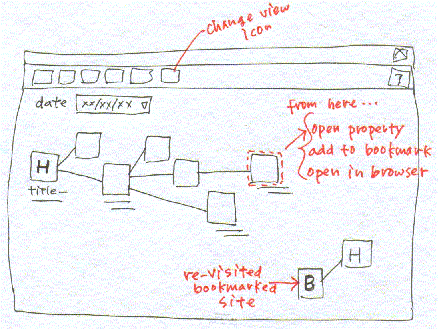 change view
icon
?
date xx/xx/xx
from here ...
open property
add to bookmark
open in browser
H
title
H
re-visited
bookmarked
site
B